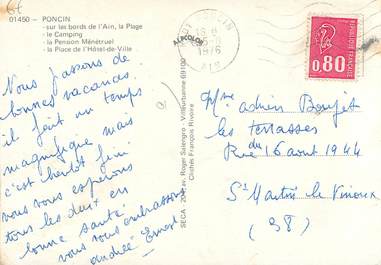 01450 - PONCIN
- sur les bords de l'Ain, la Plage
- le Camping
- la Pension Ménétruel
- la Place de l'Hôtel-de-Ville
Nous passons de
bonnes vacances.
il fait un temps
magnifique mais
c'est bientôt fini
nous vous espérons
tous les deux en
bonne santé
nous vous embrassons
andrée Ernest
SEGA - 204 av. Roger Salengro - Villeurbanne 69100
Clichés Français Rivoire
PONCIN
1976
AIN
0,80
POSTES
Mme adrien
les terrasses
Rue du 16 août 1944
St Martin le Vinoux
(38)